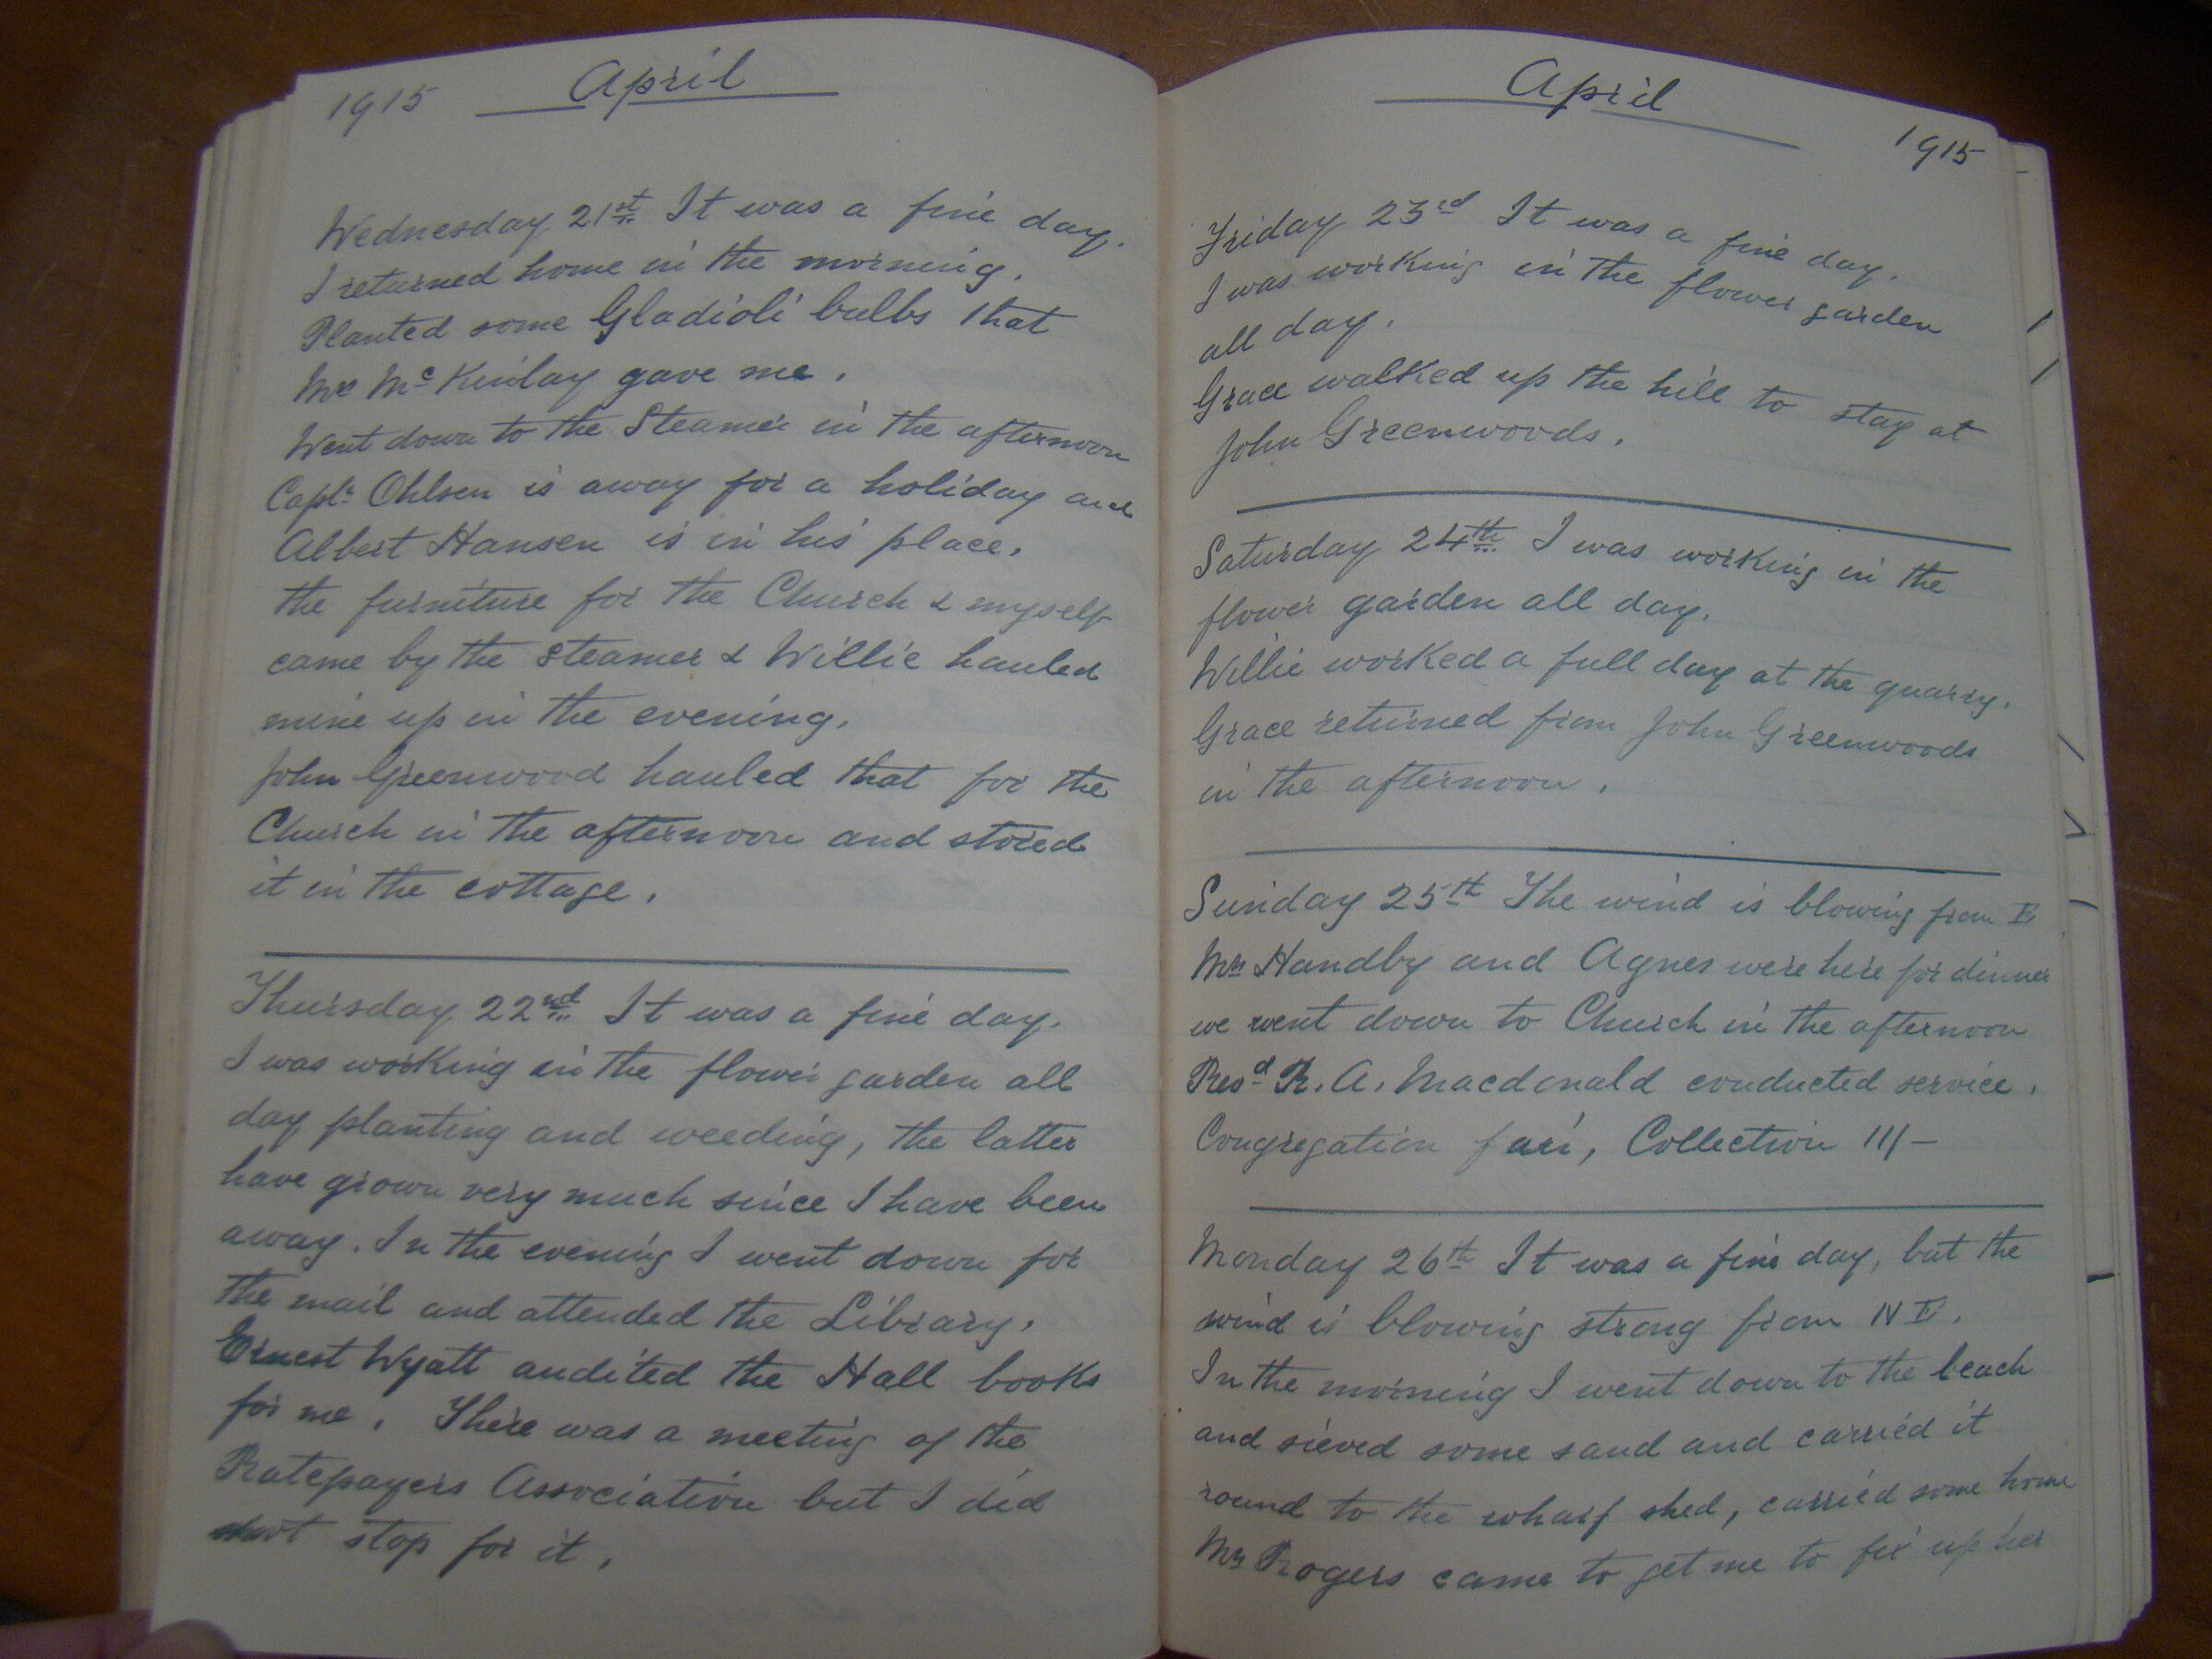 1915 April
Wednesday 21st It was a fine day.
I returned home in the morning.
Planted some Gladioli bulbs that
Mrs McKinlay gave me.
Went down to the Steamer in the afternoon
Capt. Ohlsen is away for a holiday and
Albert Hansen is in his place.
the furniture for the Church & myself
came by the steamer & Willie hauled
mine up in the evening.
John Greenwood hauled that for the
Church in the afternoon and stored
it in the cottage.
Thursday 22nd It was a fine day.
I was working in the flower garden all
day planting and weeding, the latter
have grown very much since I have been
away. In the evening I went down for
the mail and attended the Library.
Ernest Wyatt audited the Hall books
for me. There was a meeting of the
Ratepayers Association but I did
not stop for it.
April 1915
Friday 23rd It was a fine day.
I was working in the flower garden
all day.
Grace walked up the hill to stay at
John Greenwoods.
Saturday 24th I was working in the
flower garden all day.
Willie worked a full day at the quarry.
Grace returned from John Greenwoods
in the afternoon.
Sunday 25th The wind is blowing from E
Mrs Handby and Agnes were here for dinner
we went down to Church in the afternoon
Revd R. A. Macdonald conducted service.
Congregation fair, Collection 11/-
Monday 26th It was a fine day, but the
wind is blowing strong from NE.
In the morning I went down to the beach
and sieved some sand and carried it
round to the wharf shed, carried some home
Mrs Rogers came to get me to fix up her